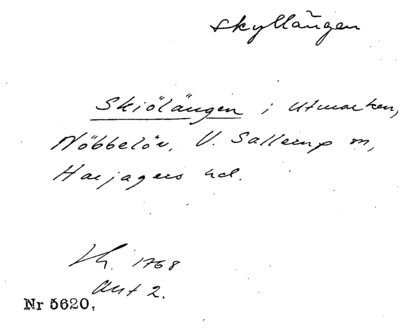 skyllängen
Skiölängen i Utmarken,
Nöbbelöv, V. Sallerup sn,
Harjagers hd.
1768
akt 2.
Nr 5620.